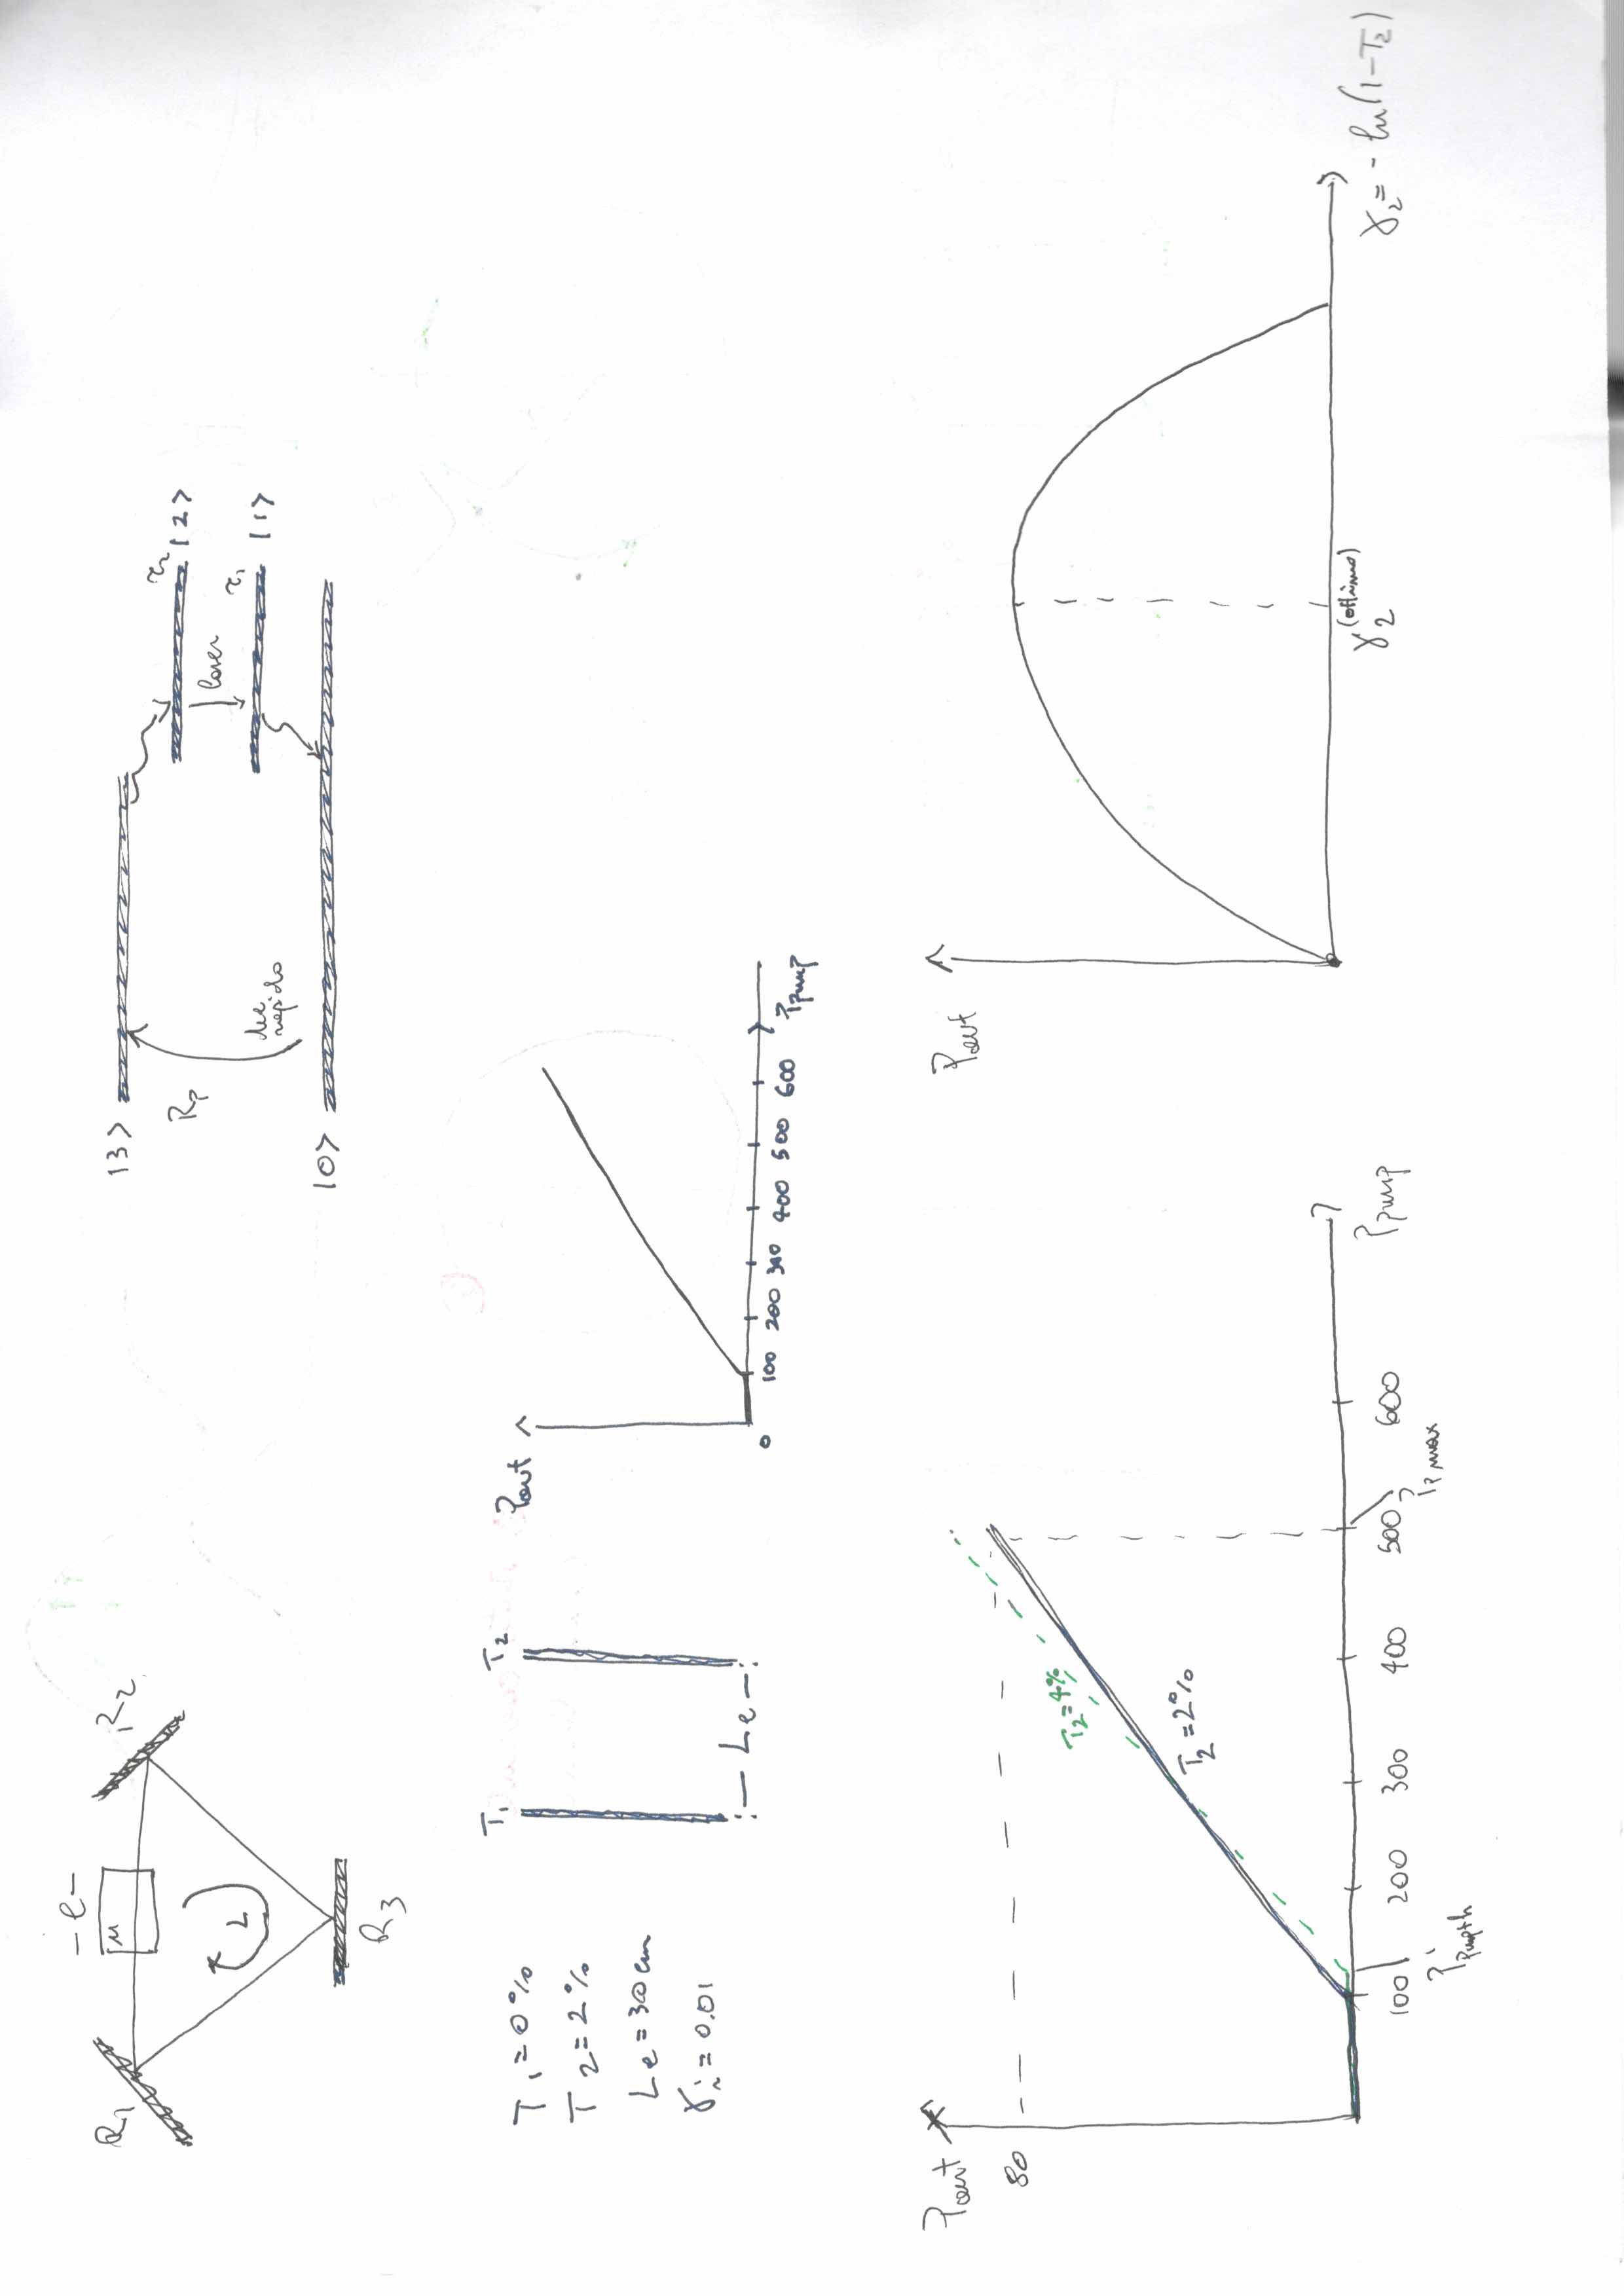 – ℓ –
R1
μ
R2
L
R3
|3>
τ2
|2>
Rp
laser
τ1
|1>
rapido
|0>
T1 = 0%
T2 = 2%
Le = 30 cm
γi = 0.01
T1
T2
– Le –
Pout
0
100
200
300
400
500
600
Ppump
Pout
80
T2=4%
T2=2%
100
200
300
400
500
600
Ppump
P'pumpth
Pp max
Pout
γ2(ottimo)
γ2 = - ln(1-T2)